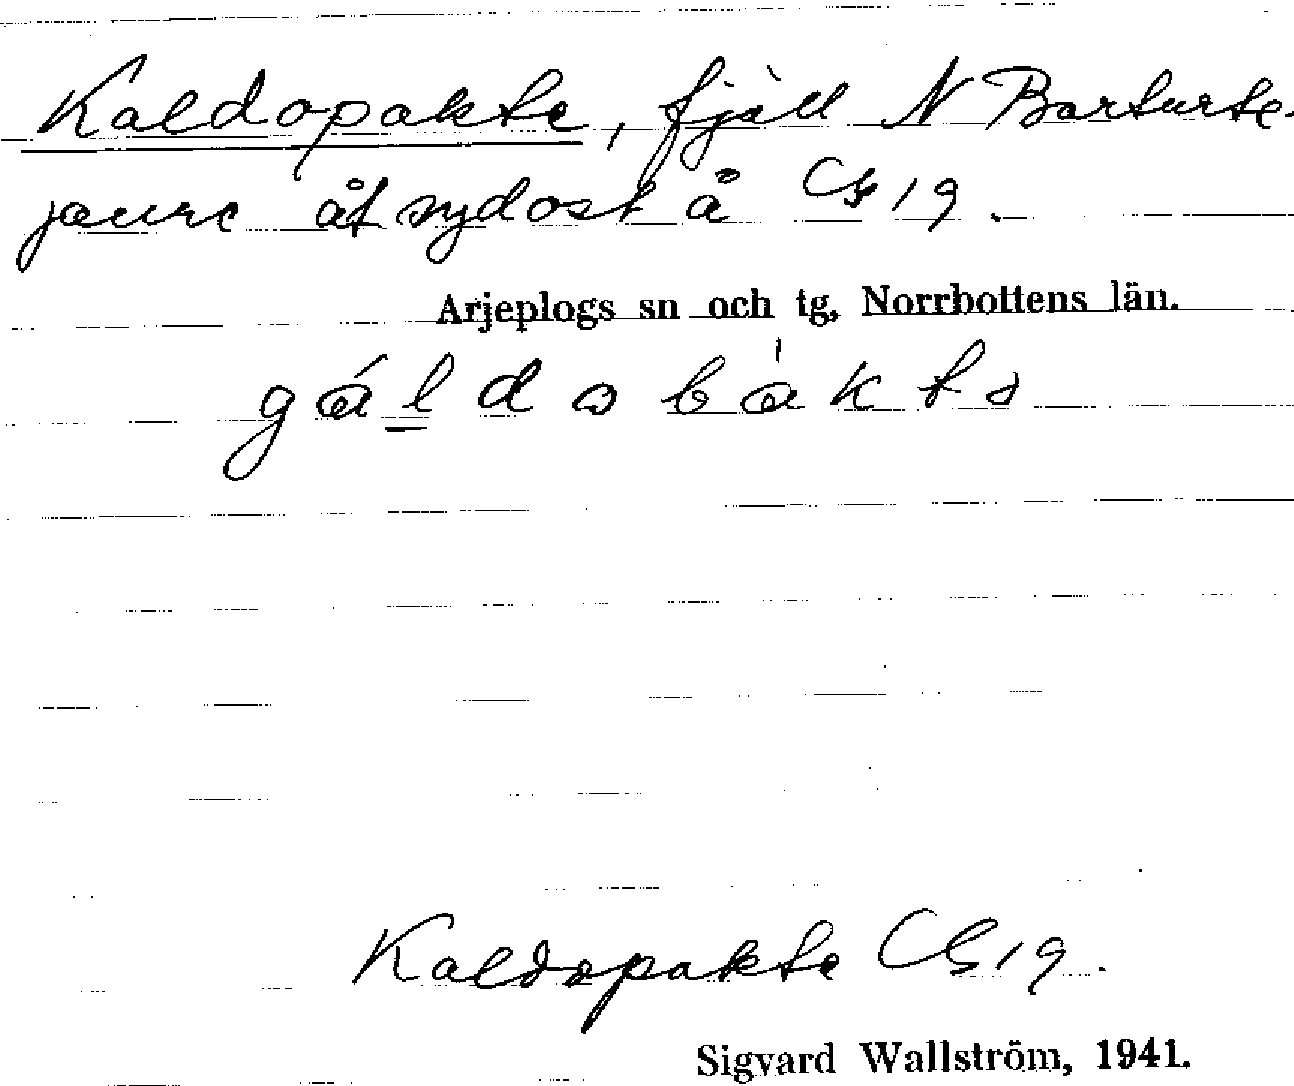 Kaldopakte, fjäll N Barturte-
jaure åt sydost å Gb 19.
Arjeplogs sn och tg, Norrbottens län.
gáldobákts
Kaldopakte Gb 19.
Sigvard Wallström, 1941.